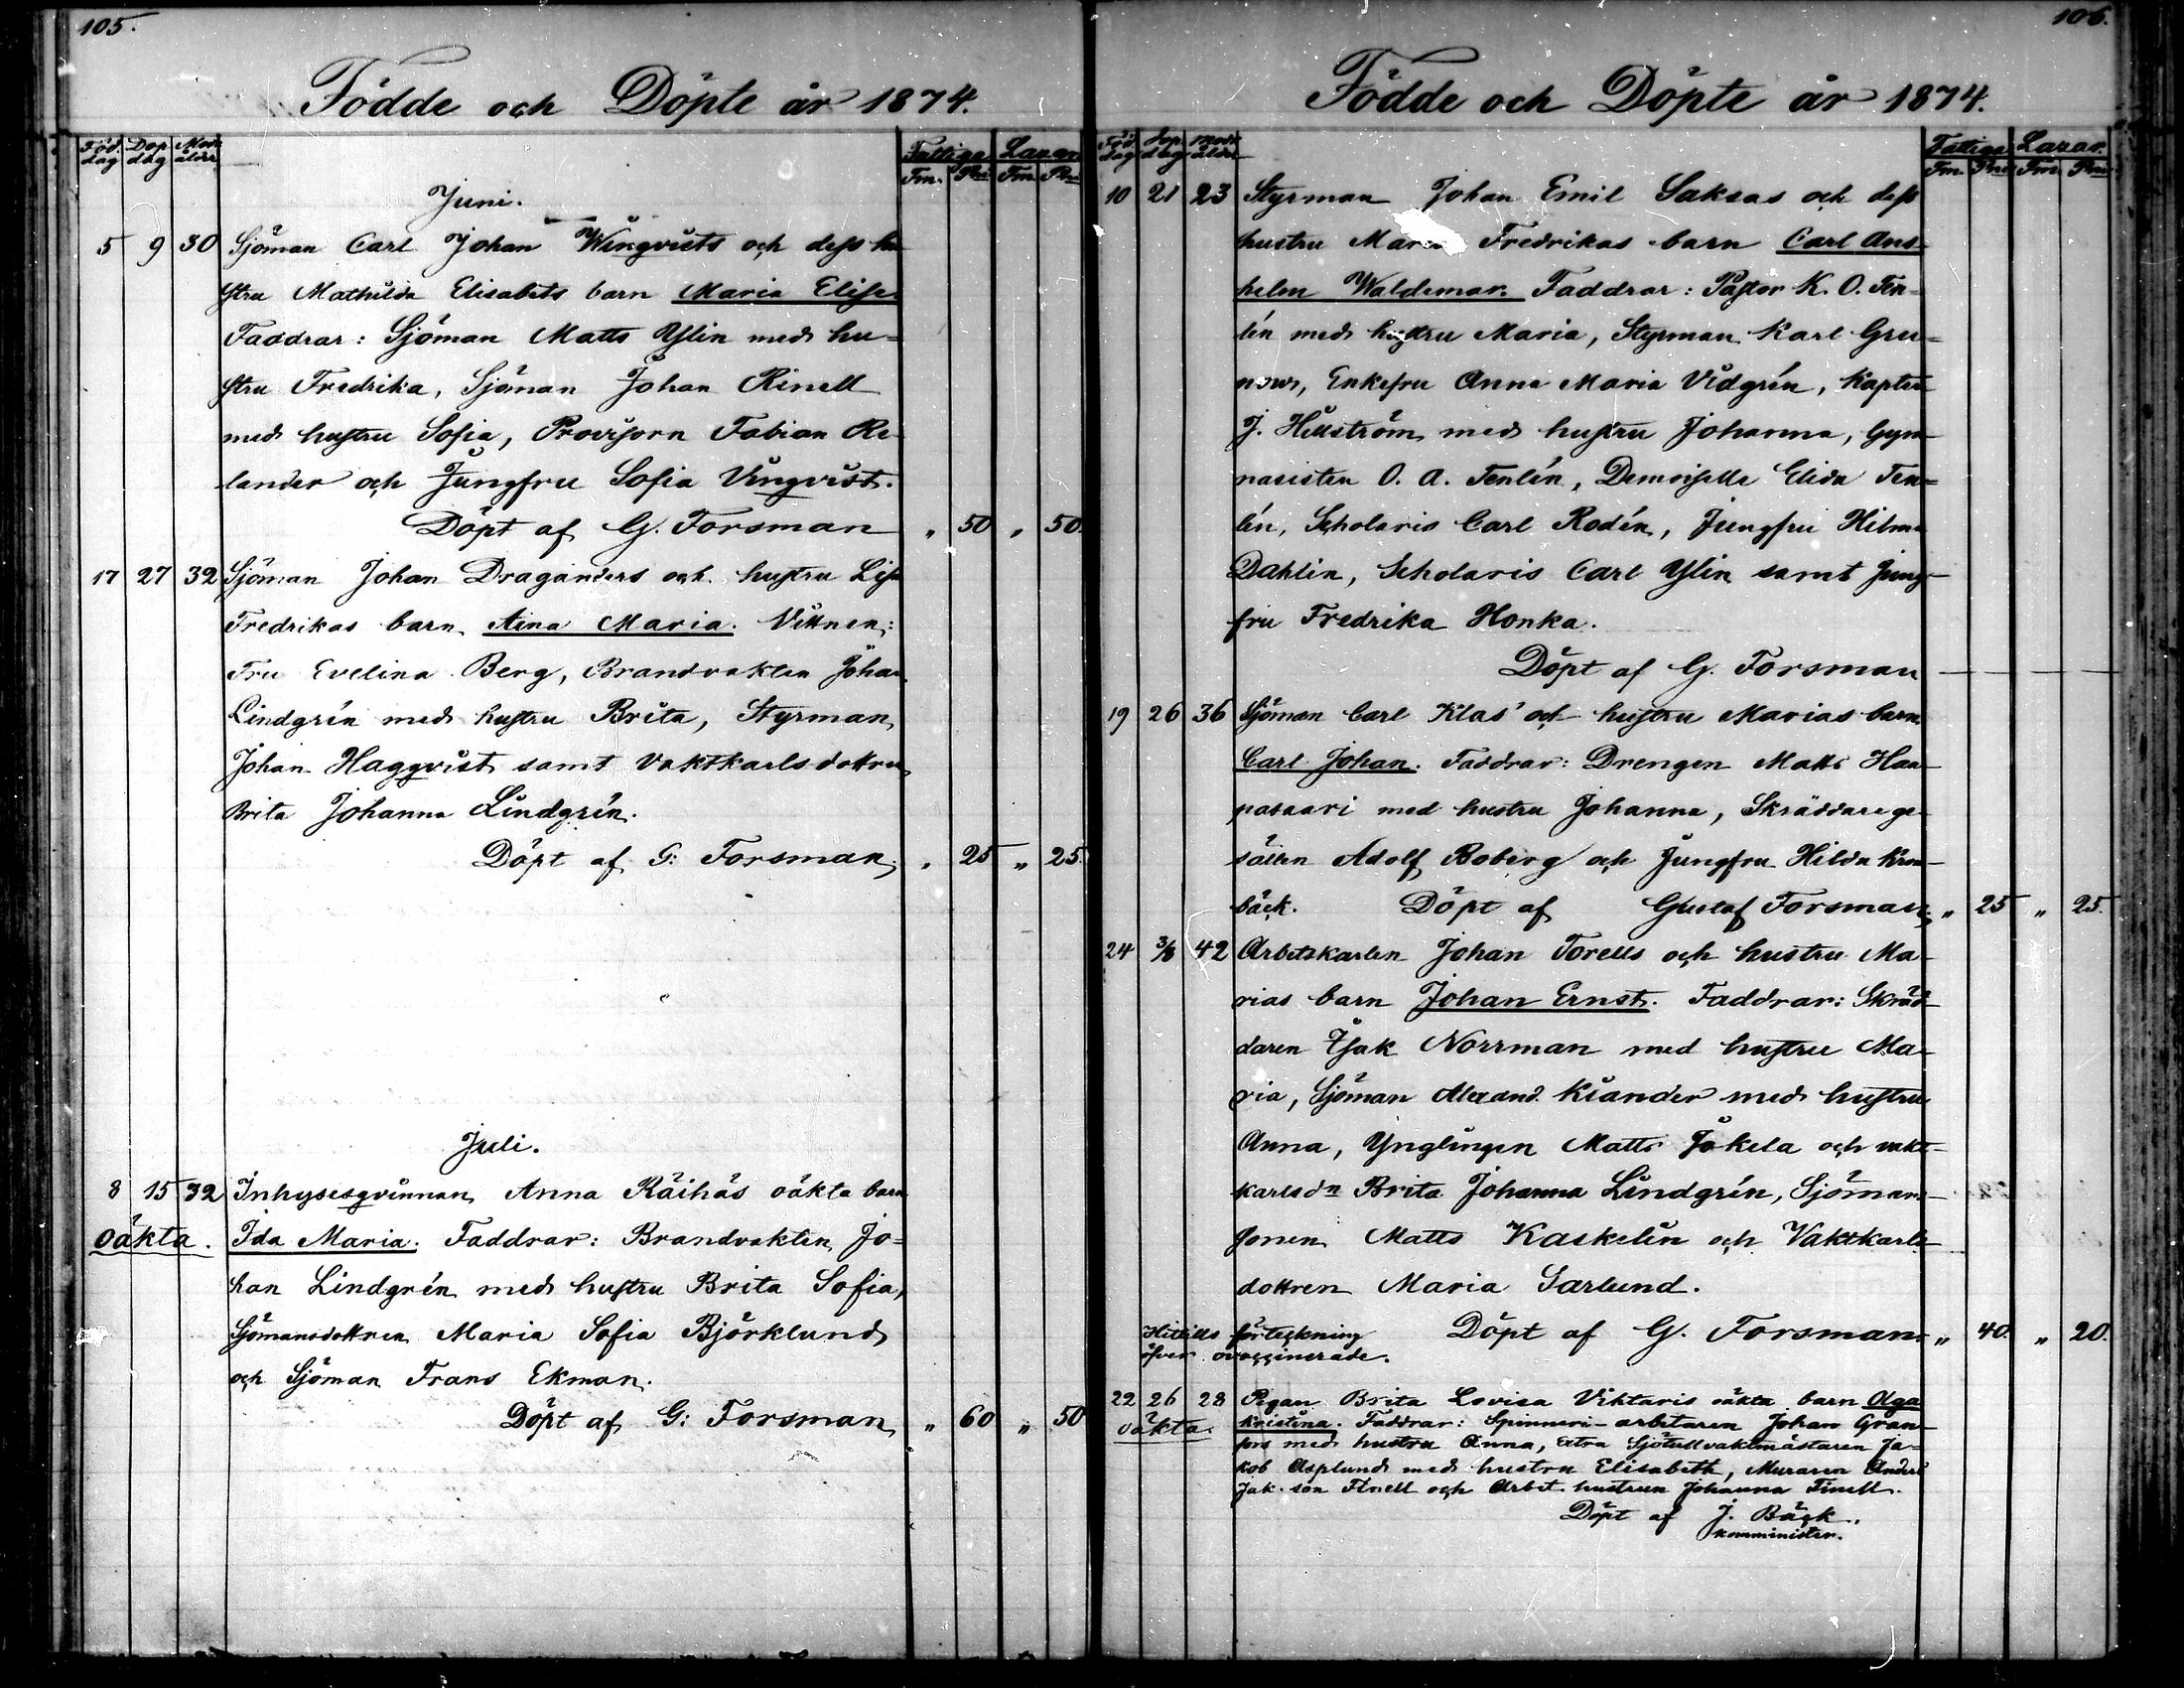 105.
Födde och Döpte år 1874.
Föd. dag Dop dag Mod. ålder
Fattiga Lazar.
Fm. Pni Fm. Pni
Juni.
5 9 30 Sjöman Carl Johan Winqvists och dess hu
stru Mathilda Elisabets barn Maria Elise.
Faddrar: Sjöman Matts Ylin med hu=
stru Fredrika, Sjöman Johan Rinell
med hustru Sofia, Provisorn Fabian Re
lander och Jungfru Sofia Vinqvist.
Döpt af G. Forsman " 50 " 50.
17 27 32 Sjöman Johan Draganders och hustru Lisa
Fredrikas barn Aina Maria. Vittnen:
Fru Evelina Berg, Brandvakten Johan
Lindgrén med hustru Brita, Styrman
Johan Hagqvist samt Vaktkarlsdottren
Brita Johanna Lindgrén.
Döpt af G: Forsman. " 25 " 25.
Juli.
8 15 32 Inhysesqvinnan Anna Räihäs oäkta barn
oäkta. Ida Maria. Faddrar: Brandvakten Jo=
han Lindgrén med hustru Brita Sofia,
Sjömansdottren Maria Sofia Björklund
och Sjöman Frans Ekman.
Döpt af G: Forsman " 60 " 50
106.
Födde och Döpte år 1874.
Föd. dag Dop dag Mod. ålder
Fattiga Lazar.
Fm. Pni Fm. Pni
10 21 23 Styrman Johan Emil Saksas och dess
hustru Maria Fredrikas barn Carl Ans
helm Waldemar. Faddrar: Pastor K. O. Ten=
lén med hustru Maria, Styrman Karl Gru=
now, Enkefru Anna Maria Vidgrén, Kapten
J. Hellström med hustru Johanna, Gym
nasisten O. A. Tenlén, Demoiselle Elida Ten=
lén, Scholaris Carl Rodén, Jungfru Hilma
Dahlin, Scholaris Carl Ylin samt Jung-
fru Fredrika Honka.
Döpt af G. Forsman
19 26 36 Sjöman Carl Klas' och hustru Marias barn
Carl Johan. Faddrar: Drengen Matts Haa-
pasaari med hustru Johanna, Skräddarege-
sällen Adolf Boberg och Jungfru Hilda Kron-
bäck. Döpt af Gustaf Forsman, " 25 " 25.
24 3/8 42 Arbetskarlen Johan Torells och hustru Ma-
rias barn Johan Ernst. Faddrar: Skräd-
daren Isak Norrman med hustru Ma-
ria, Sjöman Alexand. Kiander med hustru
Anna, Ynglingen Matts Jokela och vakt-
karlsdn Brita Johanna Lindgrén, Sjömans-
sonen Matts Kaskelin och Vaktkarls
dottren Maria Garlund.
Döpt af G. Forsman " 40. " 20.
Hitills förteckning
öfver ovaccinerade.
22 26 28 Pigan Brita Lovisa Viktaris oäkta barn Olga
oäkta. Kristina. Faddrar: Spinneri-arbetaren Johan Gran-
fors med hustru Anna, extra Sjötullvaktmästaren Ja-
kob Asplund med hustru Elisabeth, Muraren Anders
Jak. son Finell och Arbet. hustrun Johanna Finell.
Döpt af J. Bäck.
komminister.